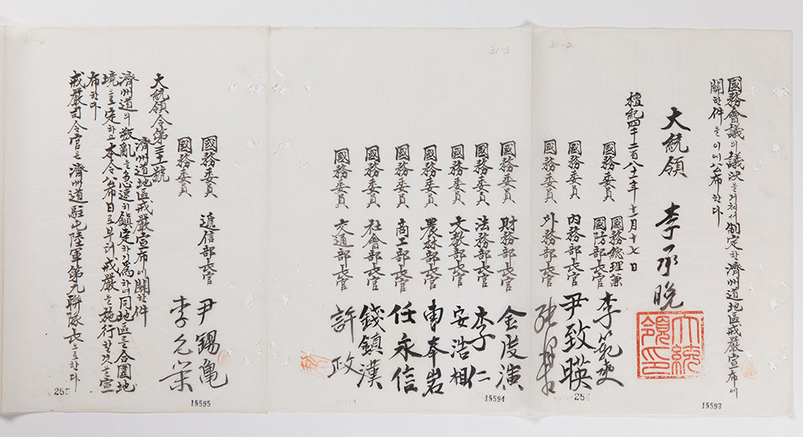 31-2
國務會議의議決을거쳐서制定한濟州道地區戒嚴宣布에
關한件을이에公布한다
大統領 李承晩
大統領印
檀紀四千二百八十一年十一月十七日
國務委員 國務總理兼國防部長官 李範奭
國務委員 內務部長官 尹致暎
國務委員 外務部長官
254
15593
31-3
國務委員 財務部長官 金度演
國務委員 法務部長官 李仁
國務委員 文敎部長官 安浩相
國務委員 農林部長官 曺奉岩
國務委員 商工部長官 任永信
國務委員 社會部長官 錢鎭漢
國務委員 交通部長官 許政
15594
31-4
國務委員 遞信部長官 尹錫龜
國務委員 李允榮
大統領令第三十一號
濟州道地區戒嚴宣布에關한件
濟州道의叛亂을急速히鎭定하기爲하여同地區를合圍地
境으로定하고本令公布日로부터戒嚴을施行할것을宣
布한다
戒嚴司令官은濟州道駐屯陸軍第九聯隊長으로한다
255
15595